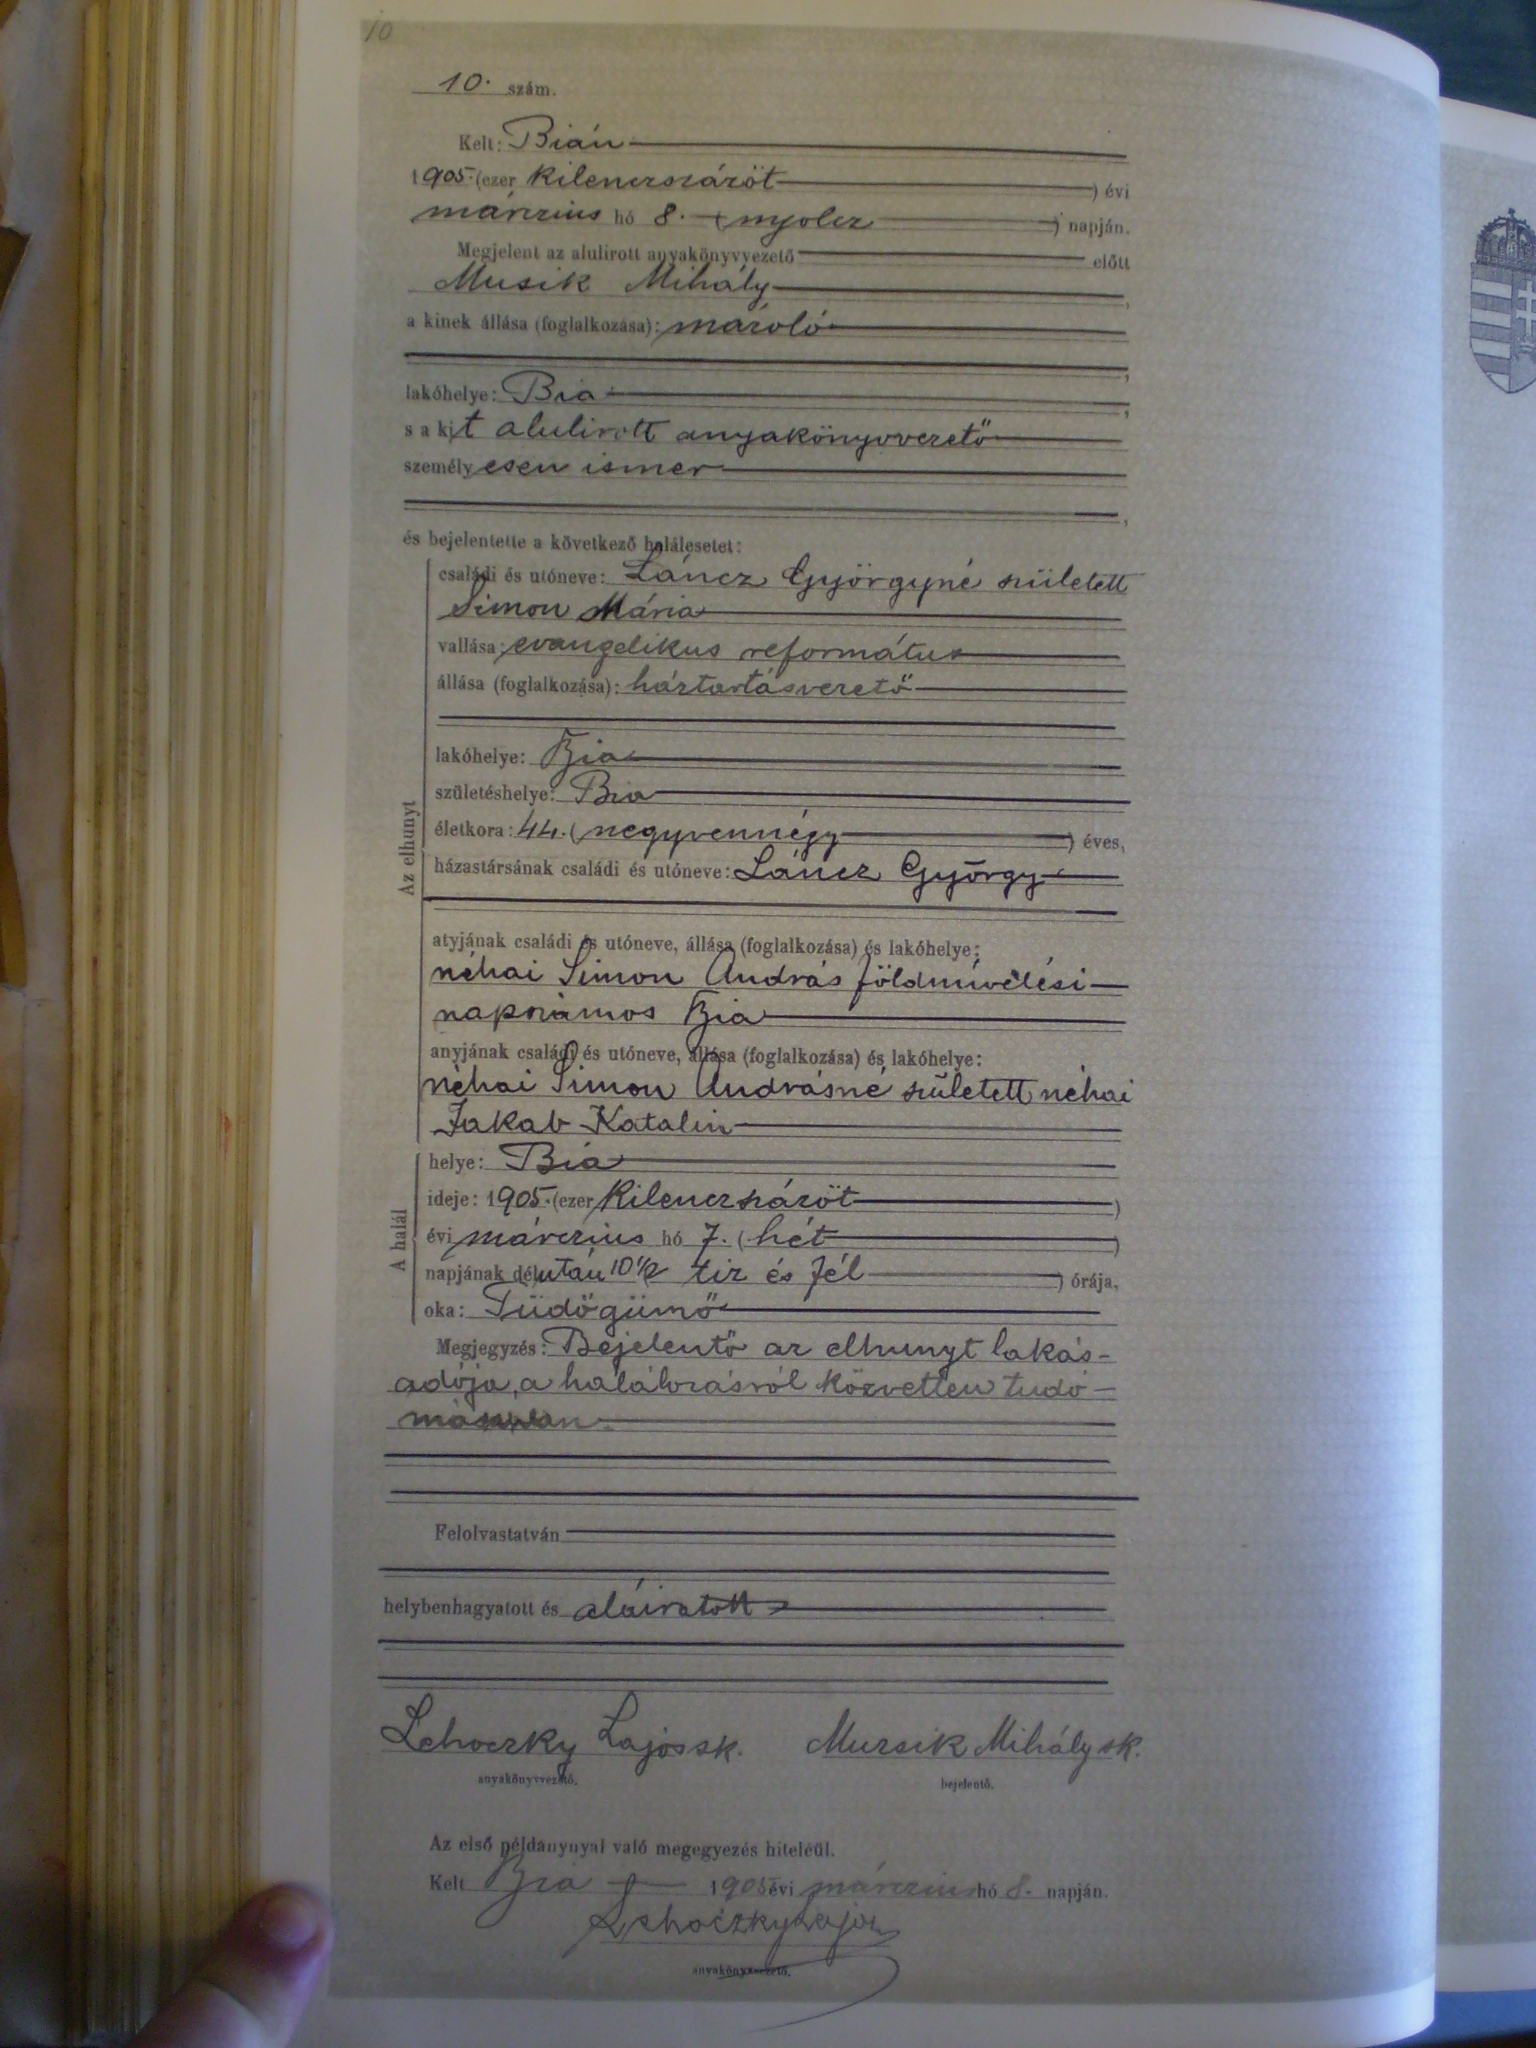 10
10. szám.
Kelt: Bián
1905. (ezer kilenczszázöt) évi
márczius hó 8. (nyolcz) napján.
Megjelent az alulirott anyakönyvvezető előtt
Musik Mihály,
a kinek állása (foglalkozása): mázoló
,
lakóhelye: Bia,
s a kit alulirott anyakönyvvezető
személyesen ismer
,
és bejelentette a következő halálesetet:
Az elhunyt
családi és utóneve: Láncz Györgyné született
Simon Mária
vallása: evangelikus református
állása (foglalkozása): háztartásvezető
lakóhelye: Bia
születéshelye: Bia
életkora: 44. (negyvennégy) éves,
házastársának családi és utóneve: Láncz György
atyjának családi és utóneve, állása (foglalkozása) és lakóhelye:
néhai Simon András földmívelési
napszámos Bia
anyjának családi és utóneve, állása (foglalkozása) és lakóhelye:
néhai Simon Andrásné született néhai
Jakab Katalin
A halál
helye: Bia
ideje: 1905. (ezer kilenczszázöt)
évi márczius hó 7. (hét)
napjának délután 10 1/2 tiz és fél) órája,
oka: Tüdőgümő
Megjegyzés: Bejelentő az elhunyt lakás-
adója, a halálozásról közvetlen tudo-
Felolvastatván
helybenhagyatott és aláiratott
Lehoczky Lajos sk. Mursik Mihály sk.
anyakönyvvezető. bejelentő.
Az első példánynyal való megegyezés hiteléül.
Kelt Bia 1905 évi márczius hó 8. napján.
Lehoczky Lajos
anyakönyvvezető.